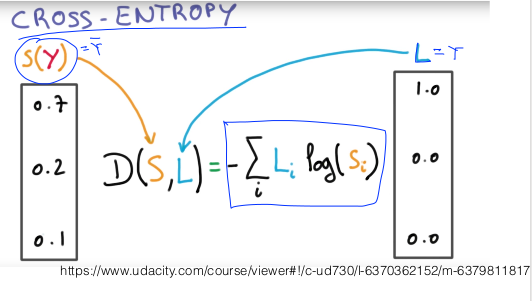 CROSS-ENTROPY
S(Y) = Ȳ
L = Y
0.7
0.2
0.1
D(S,L) = -∑ᵢ Lᵢ log(Sᵢ)
1.0
0.0
0.0
https://www.udacity.com/course/viewer#!/c-ud730/l-6370362152/m-6379811817